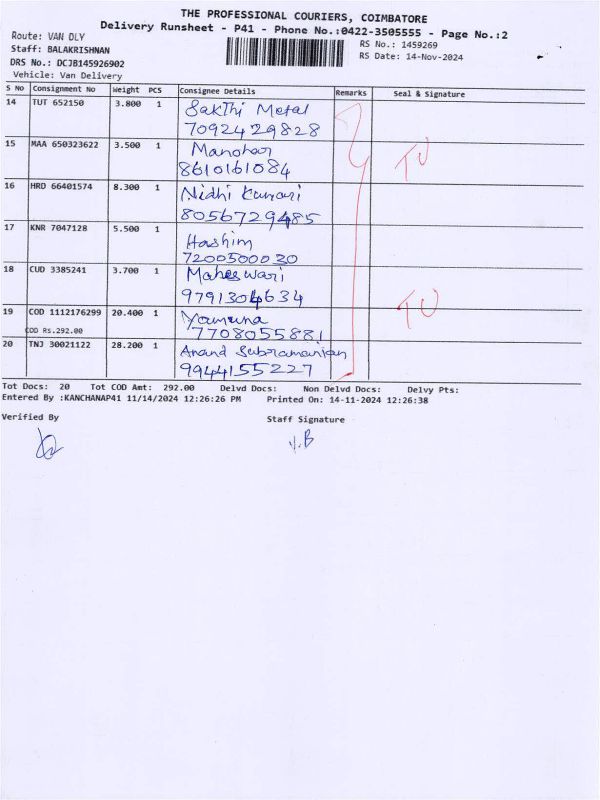 THE PROFESSIONAL COURIERS, COIMBATORE
Delivery Runsheet - P41 - Phone No.:0422-3505555 - Page No.:2
Route: VAN DLY
Staff: BALAKRISHNAN
DRS No.: DCJB145926902
Vehicle: Van Delivery
RS No.: 1459269
RS Date: 14-Nov-2024
S No Consignment No Weight PCS Consignee Details Remarks Seal & Signature
14 TUT 652150 3.800 1 Sakthi Metal
7092429828
15 MAA 650323622 3.500 1 Manohar
8610161084
TU
16 HRD 66401574 8.300 1 Nidhi Kumari
8056729485
17 KNR 7047128 5.500 1 Hashim
7200500030
18 CUD 3385241 3.700 1 Maheswari
9791304634
TU
19 COD 1112176299 20.400 1 Yamuna
COD Rs.292.00 7708055881
20 TNJ 30021122 28.200 1 Anand Subramanian
9944155227
Tot Docs: 20 Tot COD Amt: 292.00 Delvd Docs: Non Delvd Docs: Delvy Pts:
Entered By :KANCHANAP41 11/14/2024 12:26:26 PM Printed On: 14-11-2024 12:26:38
Verified By Staff Signature